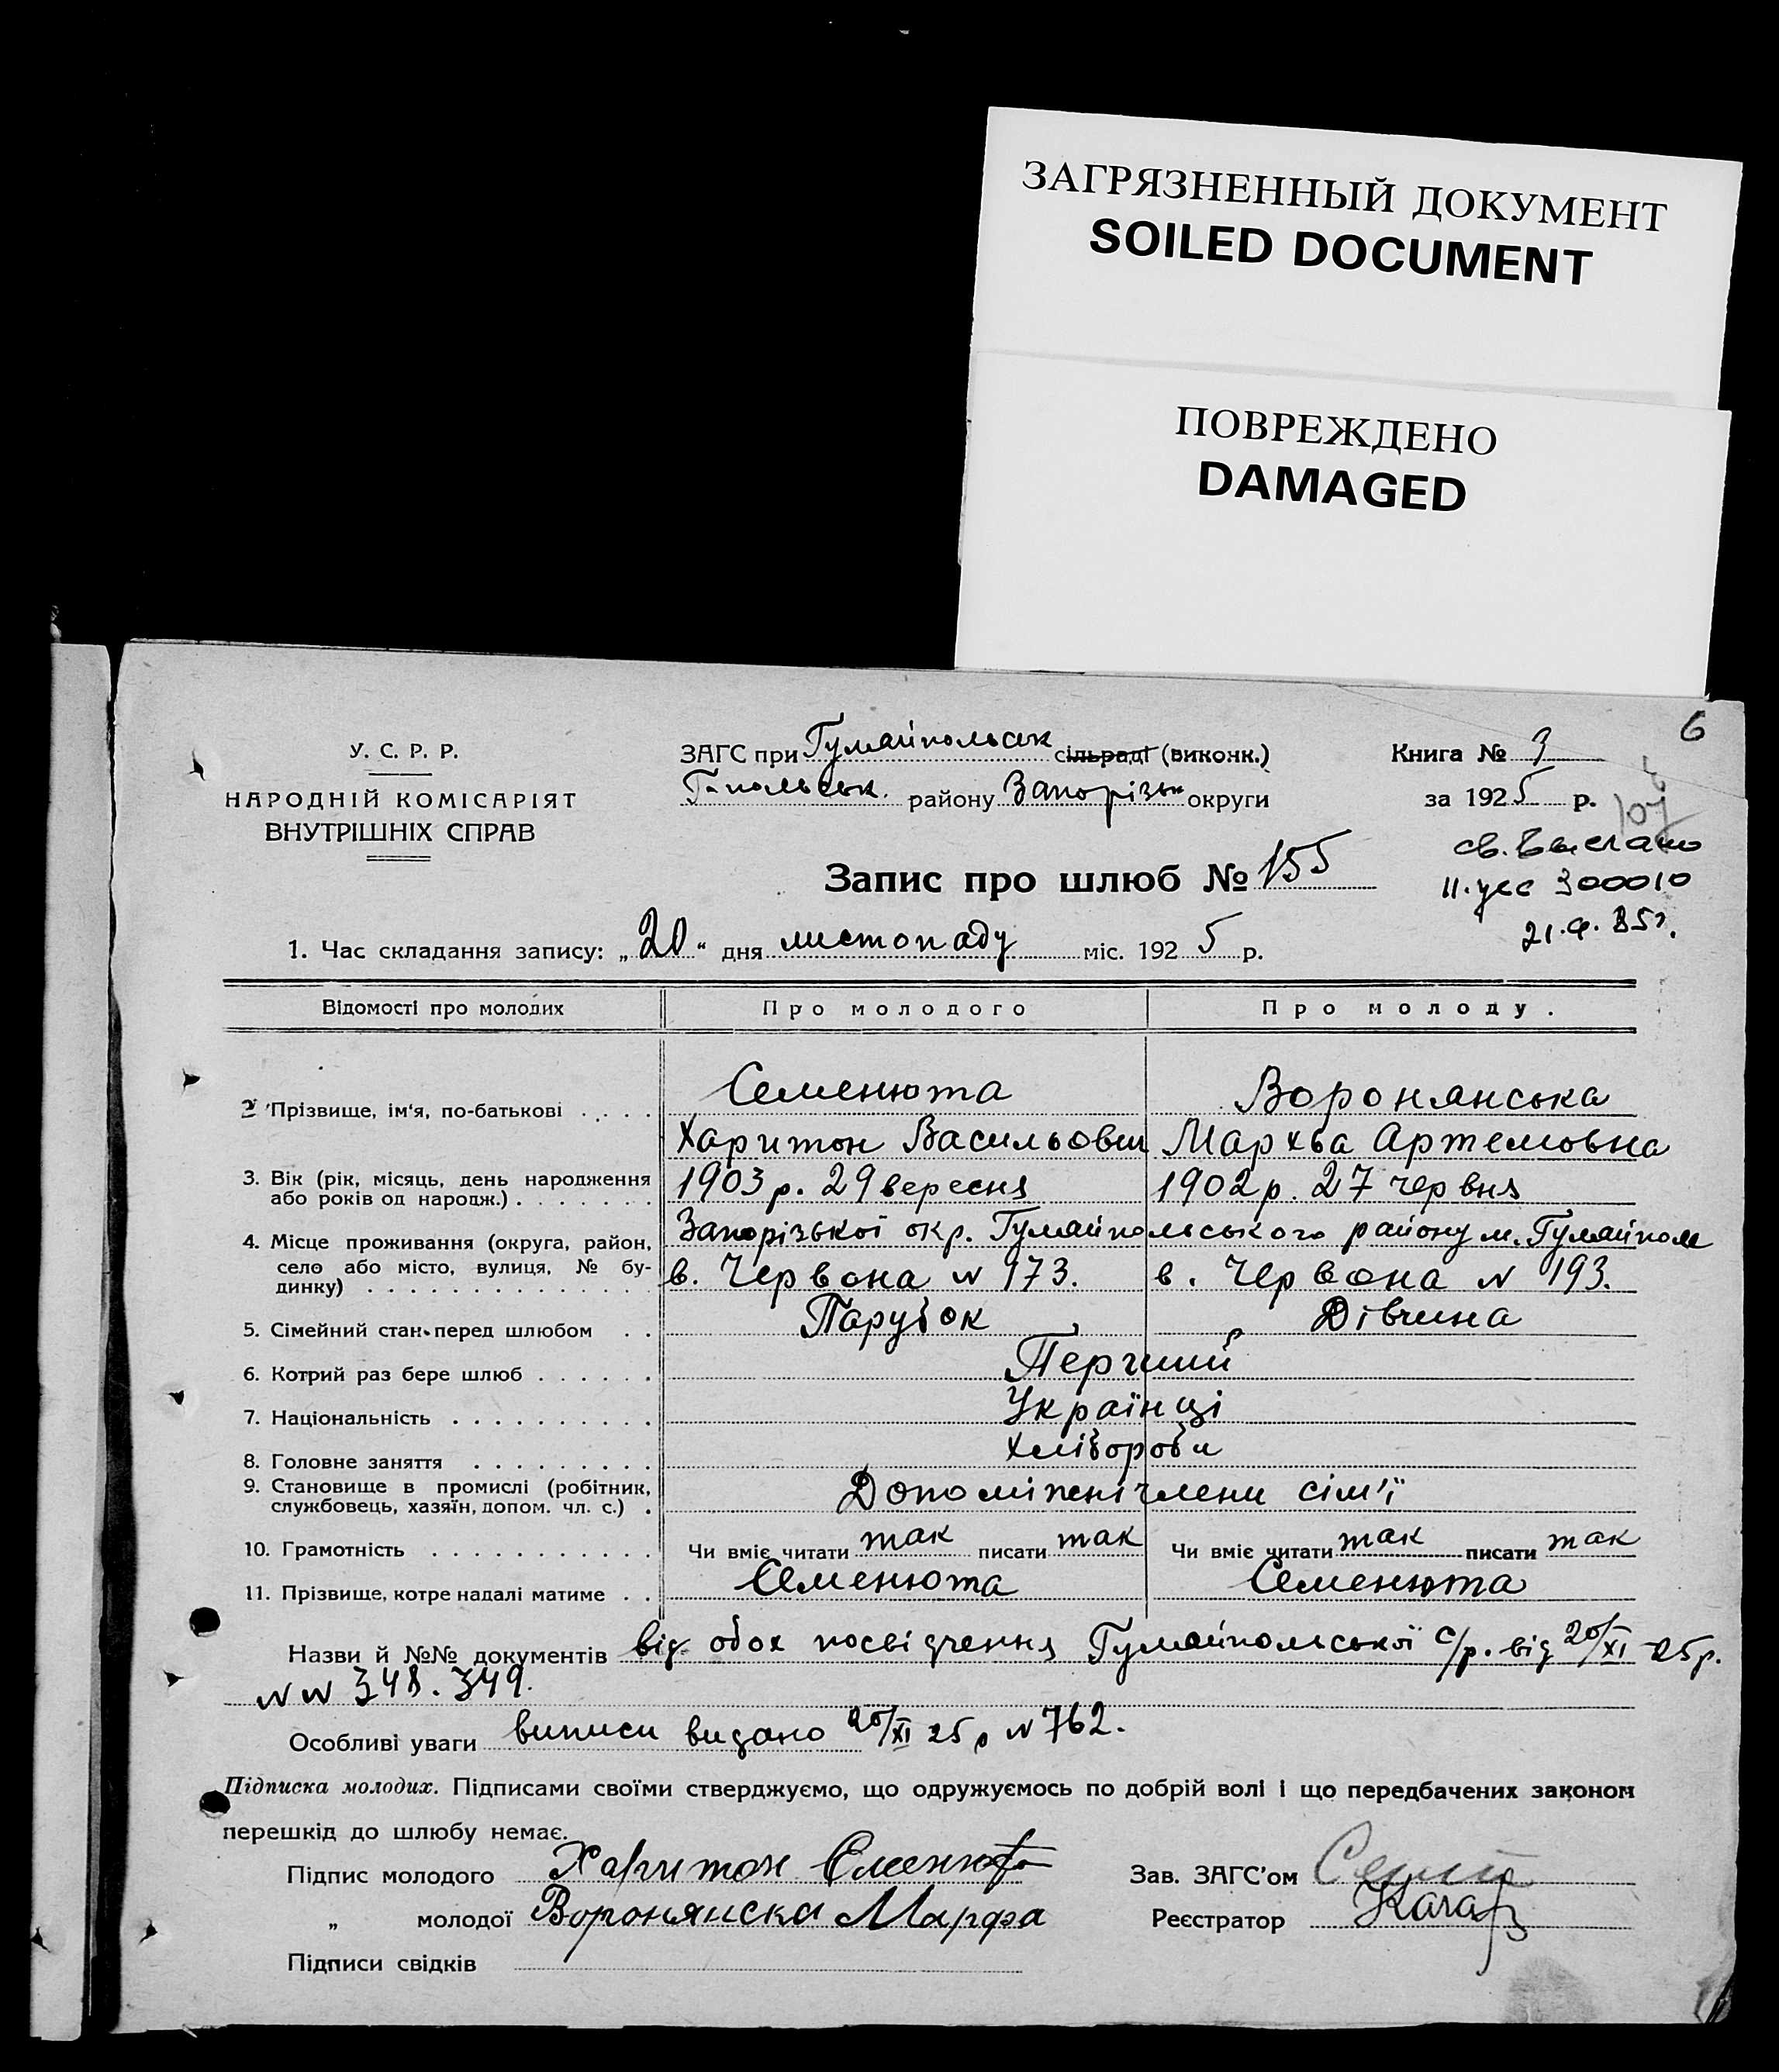 ЗАГРЯЗНЕННЫЙ ДОКУМЕНТ
SOILED DOCUMENT
ПОВРЕЖДЕНО
DAMAGED
6
У. С. Р. Р.
НАРОДНІЙ КОМІСАРІЯТ
ВНУТРІШНІХ СПРАВ
ЗАГС при Гуляйпольськ сільраді (виконк.)
Г-польськ. району Запорізьк округи
Книга № 3
за 1925 р.
107
св. выслано
II. уес 300010
21.9.85г.
Запис про шлюб № 155
1. Час складання запису: „20“ дня листопаду міс. 1925 р.
Відомості про молодих Про молодого Про молоду.
2 Прізвище, ім'я, по-батькові . . . . Семенюта Воронянська
Харитон Васильович Мархва Артемовна
3. Вік (рік, місяць, день народження або років од народж.) . . . . . . . 1903 р. 29 вересня 1902 р. 27 червня
4. Місце проживання (округа, район, село або місто, вулиця, № будинку) . . . . . . . . . . . . . . Запорізької окр. Гуляйпольського району м. Гуляйполе
в. Червона N 173. в. Червона N 193.
5. Сімейний стан перед шлюбом . . Парубок Дівчина
6. Котрий раз бере шлюб . . . . . . Перший
7. Національність . . . . . . . . . . Українці
8. Головне заняття . . . . . . . . . Хлібороби
9. Становище в промислі (робітник, службовець, хазяїн, допом. чл. с.) . Допоміжні члени сім'ї
10. Грамотність . . . . . . . . . . . Чи вміє читати так писати так Чи вміє читати так писати так
11. Прізвище, котре надалі матиме . . Семенюта Семенюта
Назви й №№ документів від обох посвідчення Гуляйпольської с/р. від 20/XI -25р.
N N 348. 349.
Особливі уваги виписи видано 20/XI 25 р N 762.
Підписка молодих. Підписами своїми стверджуємо, що одружуємось по добрій волі і що передбачених законом
перешкід до шлюбу немає.
Підпис молодого Харитон Семенюта Зав. ЗАГС'ом
„ молодої Воронянска Марфа Реєстратор
Підписи свідків